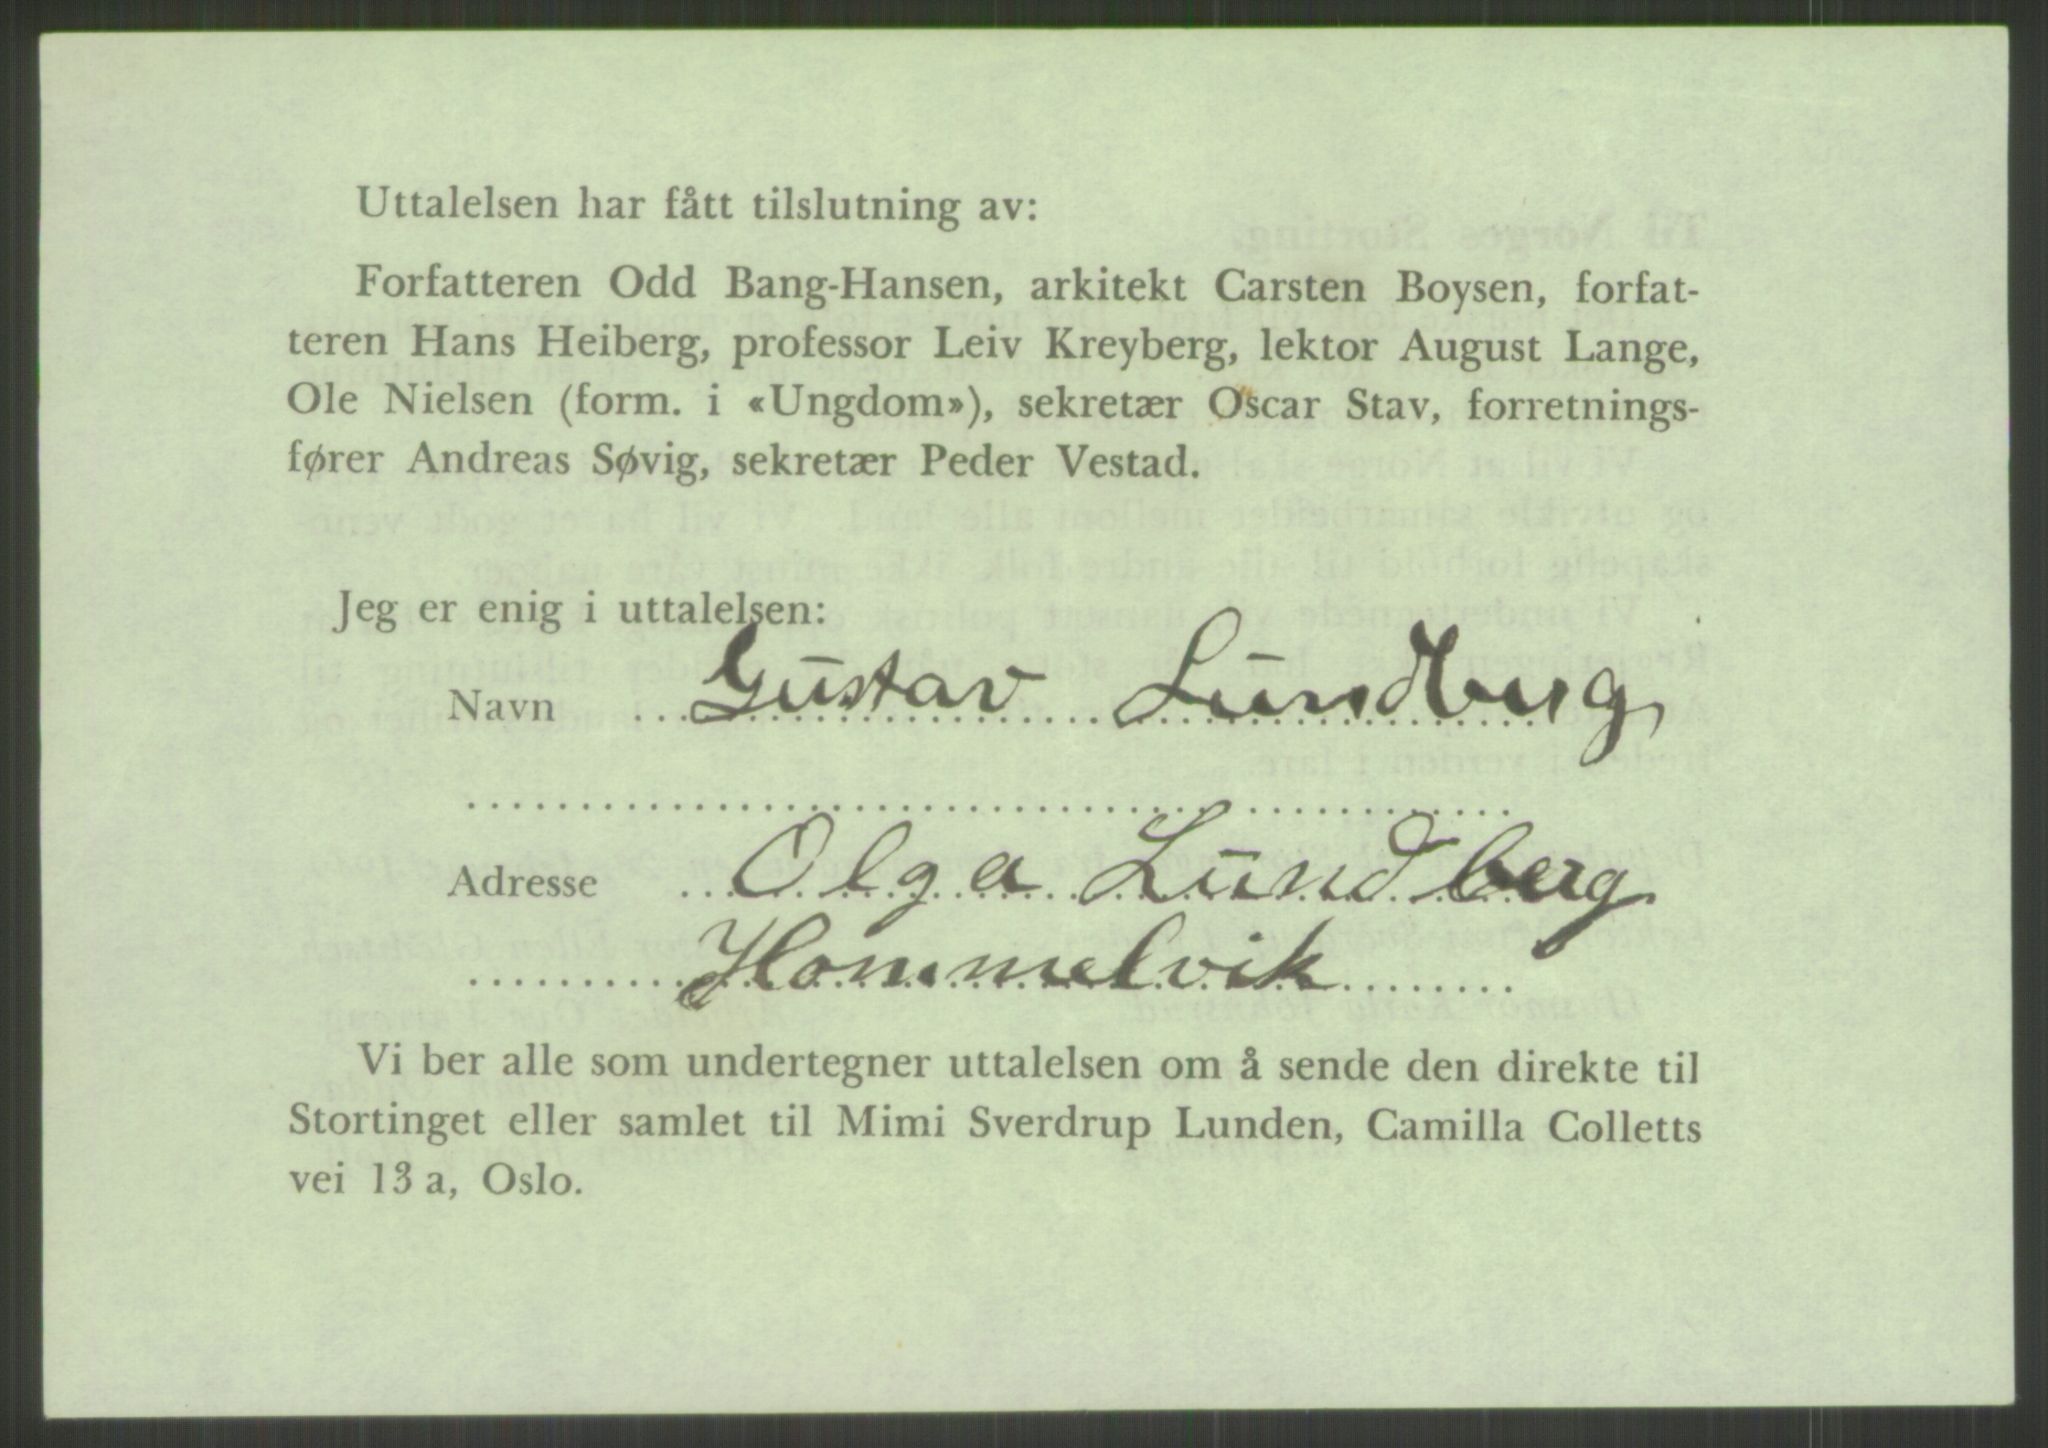 Uttalelsen har fått tilslutning av:
Forfatteren Odd Bang-Hansen, arkitekt Carsten Boysen, forfat-
teren Hans Heiberg, professor Leiv Kreyberg, lektor August Lange,
Ole Nielsen (form. i «Ungdom»), sekretær Oscar Stav, forretnings-
fører Andreas Søvig, sekretær Peder Vestad.
Jeg er enig i uttalelsen:
Navn Gustav Lundberg
Adresse Olga Lundberg
Hommelvik
Vi ber alle som undertegner uttalelsen om å sende den direkte til
Stortinget eller samlet til Mimi Sverdrup Lunden, Camilla Colletts
vei 13 a, Oslo.